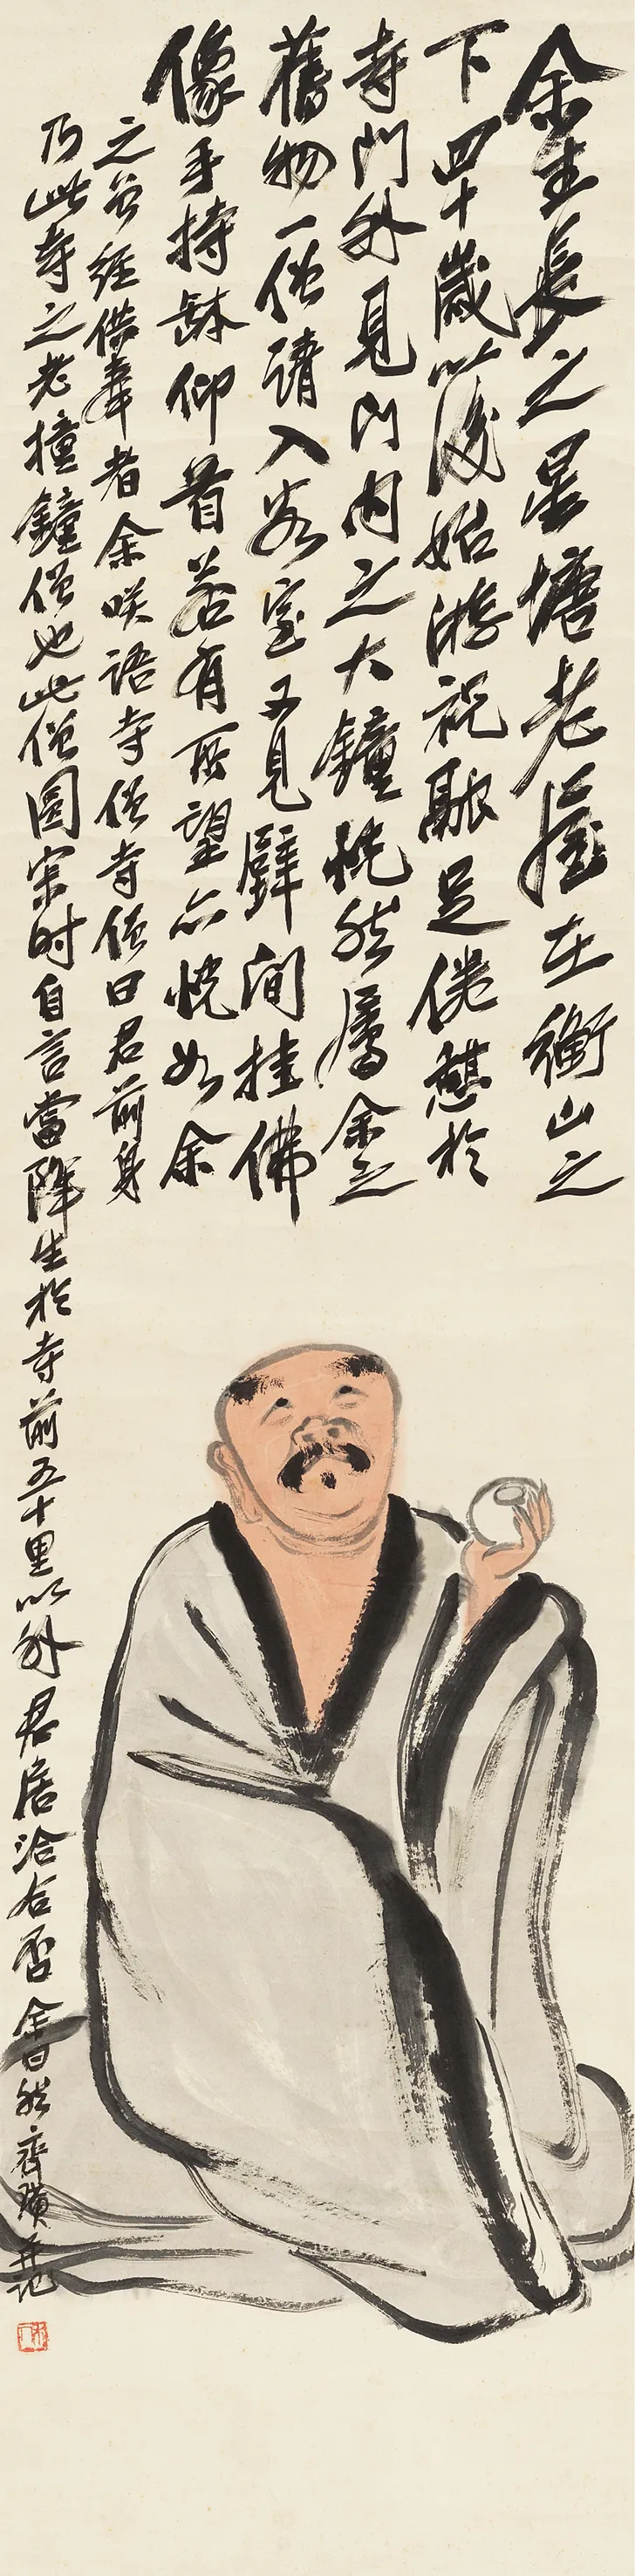 余生長之星塘老屋在衡山之
下四十歲以後始游祝融足倦憇於
寺門外見門內之大鐘恍然屬余之
舊物一僧請入客室又見壁間挂佛
像手持缽仰首若有所望亦恍如余
之曾經供奉者余咲語寺僧寺僧曰君前身
乃此寺之老撞鐘僧也此僧圓宗时自言當降生於寺前五十里以外君居洽合否余曰然齊璜并記